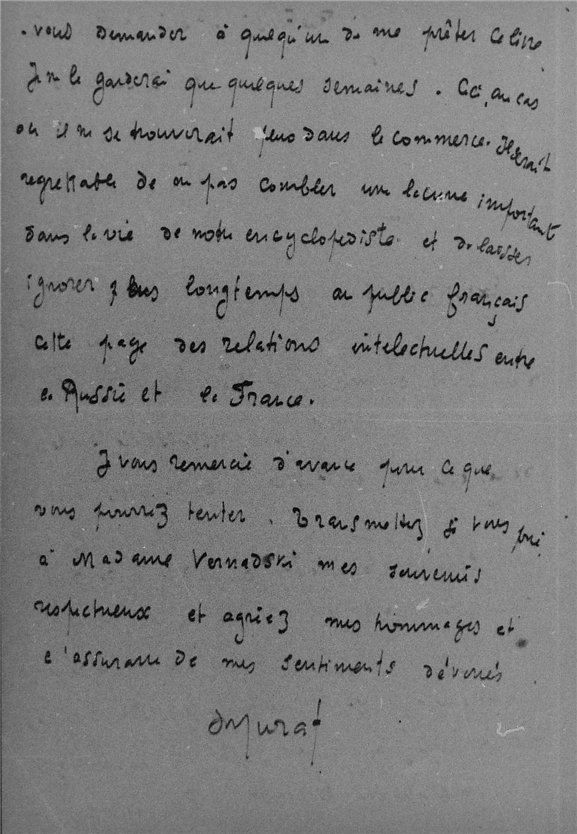 vous demander à quelqu'un de me prêter ce livre
Je ne le garderai que quelques semaines. Ceci, au cas
où il ne se trouverait plus dans le commerce. Il serait
regrettable de ne pas combler une lacune importante
dans la vie de notre encyclopédiste et de laisser
ignorer plus longtemps au public français
cette page des relations intelectuelles entre
la Russie et la France.
Je vous remercie d'avance pour ce que
vous pourrez tenter. Transmettez je vous prie
à Madame Vernadski mes souvenirs
respectueux et agréez mes hommages et
l'assurance de mes sentiments dévoués